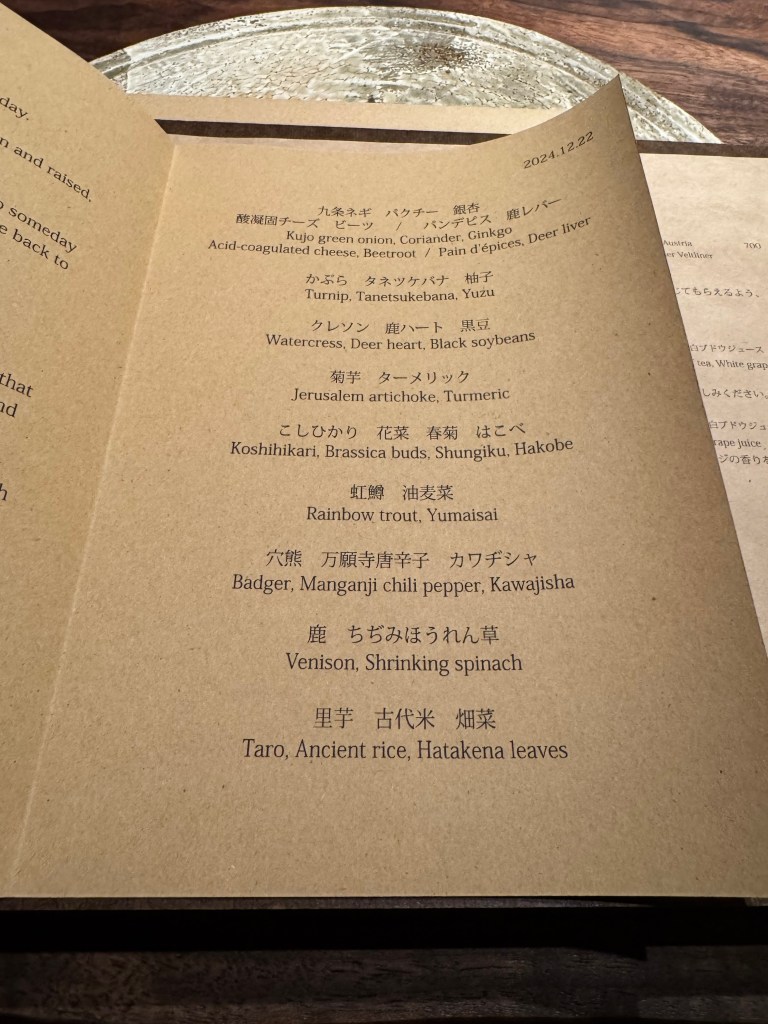 day.
n and raised.
o someday
e back to
that
nd
h
2024.12.22
九条ネギ パクチー 銀杏
酸凝固チーズ ビーツ / パンデピス 鹿レバー
Kujo green onion, Coriander, Ginkgo
Acid-coagulated cheese, Beetroot / Pain d'épices, Deer liver
かぶら タネツケバナ 柚子
Turnip, Tanetsukebana, Yuzu
クレソン 鹿ハート 黒豆
Watercress, Deer heart, Black soybeans
菊芋 ターメリック
Jerusalem artichoke, Turmeric
こしひかり 花菜 春菊 はこべ
Koshihikari, Brassica buds, Shungiku, Hakobe
虹鱒 油麦菜
Rainbow trout, Yumaisai
穴熊 万願寺唐辛子 カワヂシャ
Badger, Manganji chili pepper, Kawajisha
鹿 ちぢみほうれん草
Venison, Shrinking spinach
里芋 古代米 畑菜
Taro, Ancient rice, Hatakena leaves
Austria 700
er Veltliner
じてもらえるよう、
白ブドウジュース
tea, White grap
しみください。
白ブドウジュ
rape juice
ジの香りを